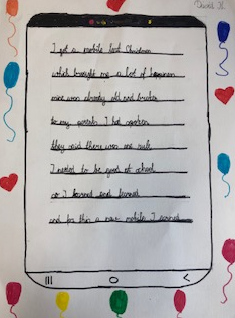 David H.
I got a mobile last Christmas
which brought me a lot of happiness
mine was already old and broken
to my parents I had spoken
they said there was one rule
I needed to be good at school
so I learned and learned
and for this a new mobile I earned